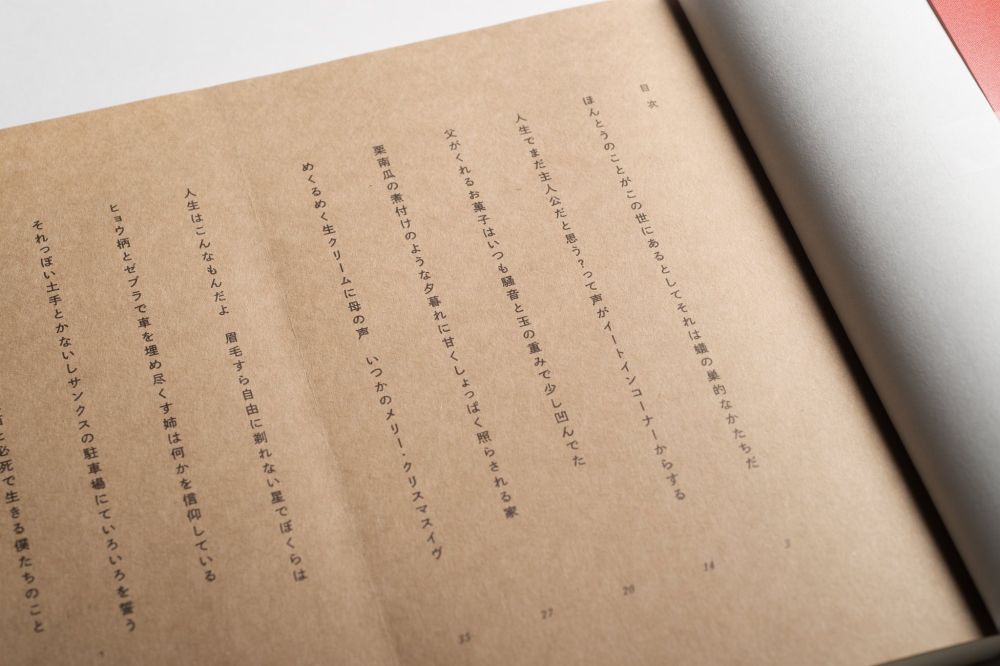 目次
ほんとうのことがこの世にあるとしてそれは蟻の巣的なかたちだ
3
人生でまだ主人公だと思う？って声がイートインコーナーからする
14
父がくれるお菓子はいつも騒音と玉の重みで少し凹んでた
20
栗南瓜の煮付けのような夕暮れに甘くしょっぱく照らされる家
27
めくるめく生クリームに母の声　いつかのメリー・クリスマスイヴ
35
人生はこんなもんだよ　眉毛すら自由に剃れない星でぼくらは
ヒョウ柄とゼブラで車を埋め尽くす姉は何かを信仰している
それっぽい土手とかないしサンクスの駐車場にていろいろを誓う
必死で生きる僕たちのこと